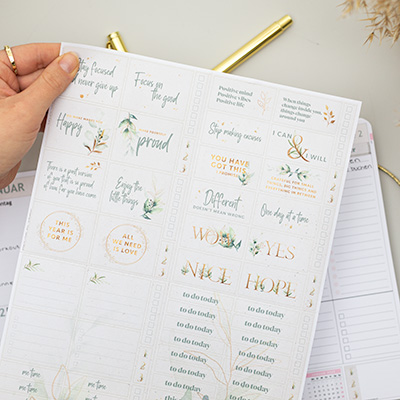 Stay focused
& never give up
Focus on
the good
Positive mind
Positive vibes
Positive life
When things
change inside you,
things change
around you
Happy
proud
Stop making excuses
I CAN
&
I WILL
YOU HAVE
GOT THIS
There is a future version
of you that is so proud
Enjoy the
little things
Different
DOESN'T MEAN WRONG
One day at a time
THIS
YEAR IS
FOR ME
ALL
WE NEED
IS LOVE
WOW
YES
NICE
HOPE
to do today
to do today
to do today
to do today
to do today
to do today
to do today
to do today
to do today
to do today
to do today
to do today
to do today
to do today
me time
me time
me time
me time